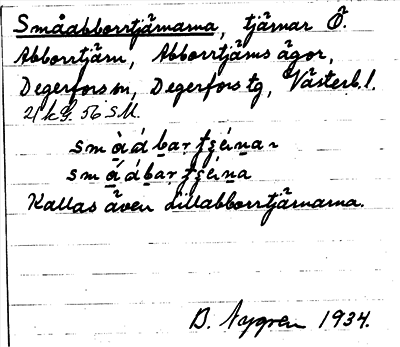 Småabborrtjärnarna, tjärnar Ö.
Abborrtjärn, Abborrtjärns ägor,
Degerfors sn, Degerfors tg, Västerb. l.
21 k G. 56 S.M.
Kallas även Lillabborrtjärnarna.
B. Nygren 1934.